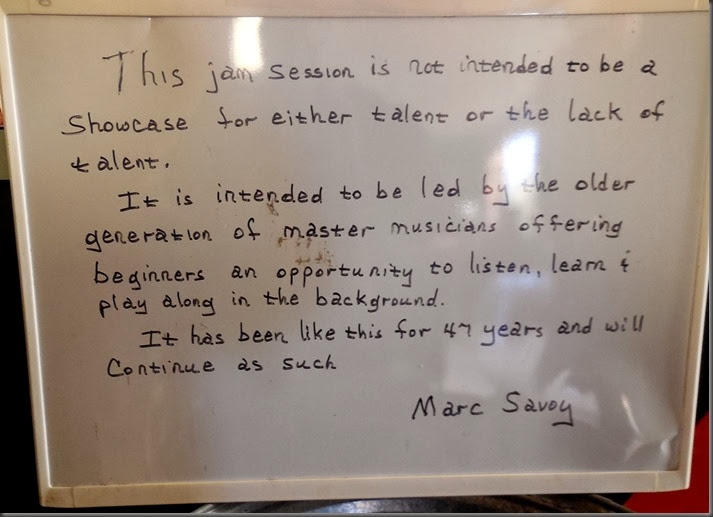 This jam session is not intended to be a
showcase for either talent or the lack of
talent.
It is intended to be led by the older
generation of master musicians offering
beginners an opportunity to listen, learn &
play along in the background.
It has been like this for 47 years and will
Continue as such
Marc Savoy